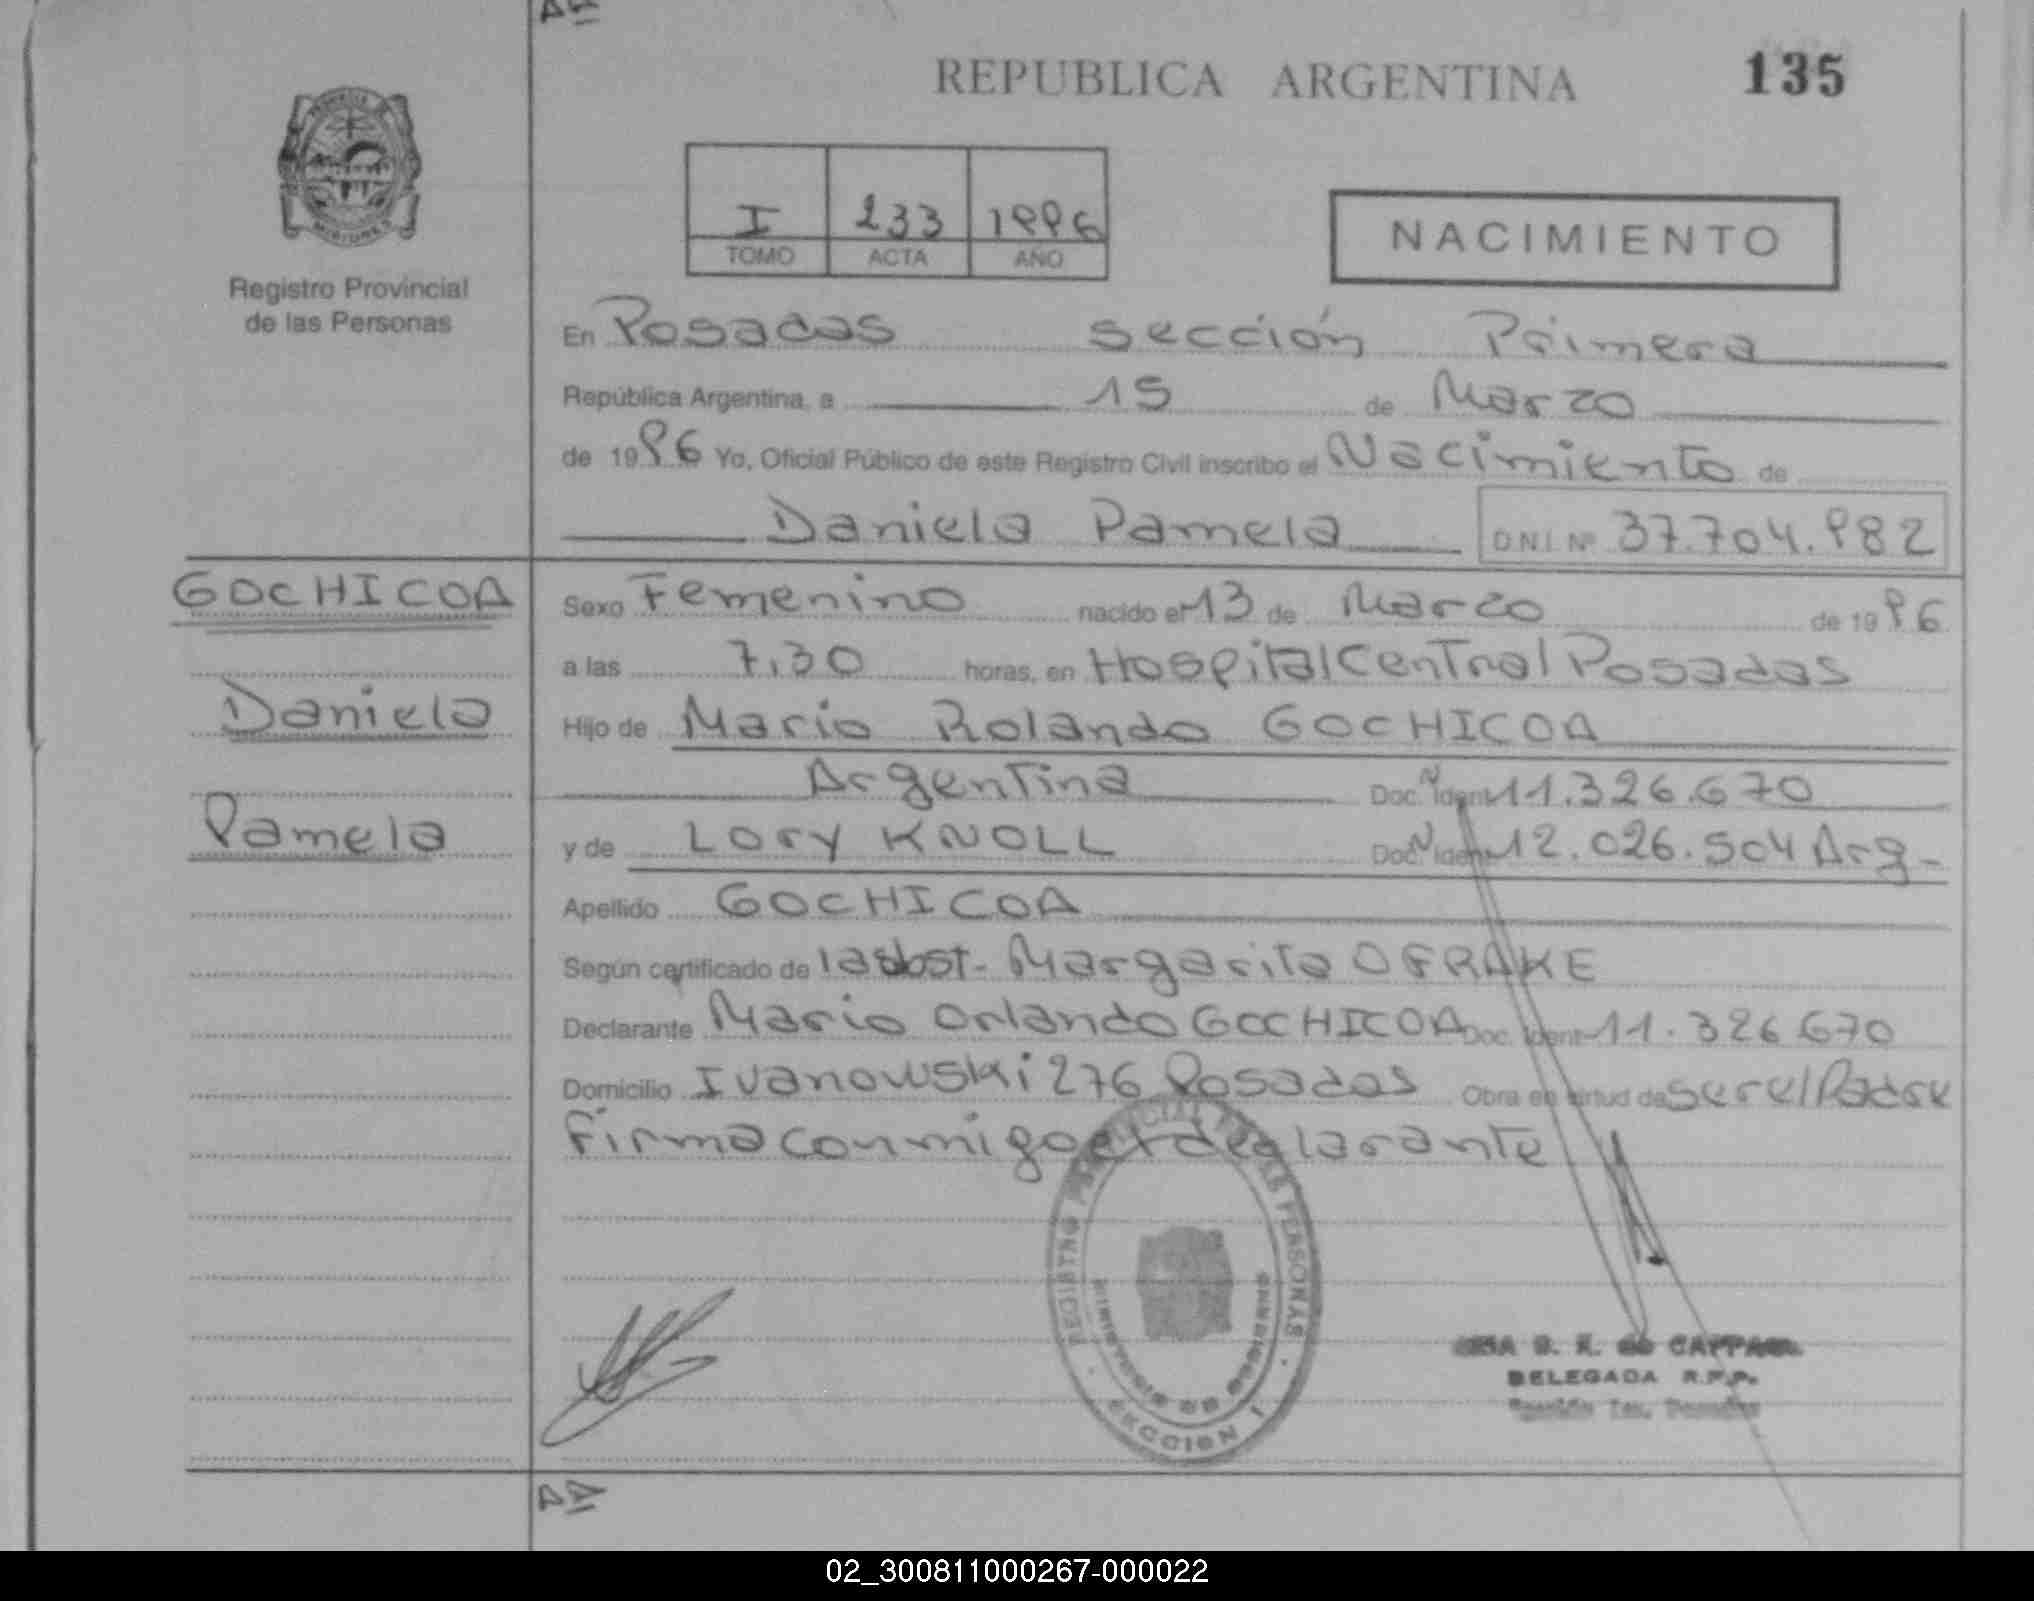 REPUBLICA ARGENTINA
135
MISIONES
Registro Provincial
de las Personas
I 233 1996
TOMO ACTA AÑO
NACIMIENTO
En Posadas sección Primera
República Argentina, a 15 de Marzo
de 1996 Yo, Oficial Público de este Registro Civil inscribo el Nacimiento de
Daniela Pamela D.N.I. Nº 37.704.982
GOCHICOA
Daniela
Pamela
Sexo Femenino nacido el 13 de Marzo de 1996
a las 7,30 horas, en Hospital Central Posadas
Hijo de Mario Rolando GOCHICOA
Argentina Doc. Ident 11.326.670
y de LORY KNOLL Doc. Ident 12.026.504 Arg-
Apellido GOCHICOA
Según certificado de la obst- Margarita OFRAKE
Declarante Mario Orlando GOCHICOA Doc. Ident 11.326.670
Domicilio Ivanowski 276 Posadas Obra en virtud de ser el Padre
Firma conmigo el declarante
REGISTRO PROVINCIAL DE LAS PERSONAS
MINISTERIO DE GOBIERNO
SECCION I
DELEGADA R.P.P.
02_300811000267-000022